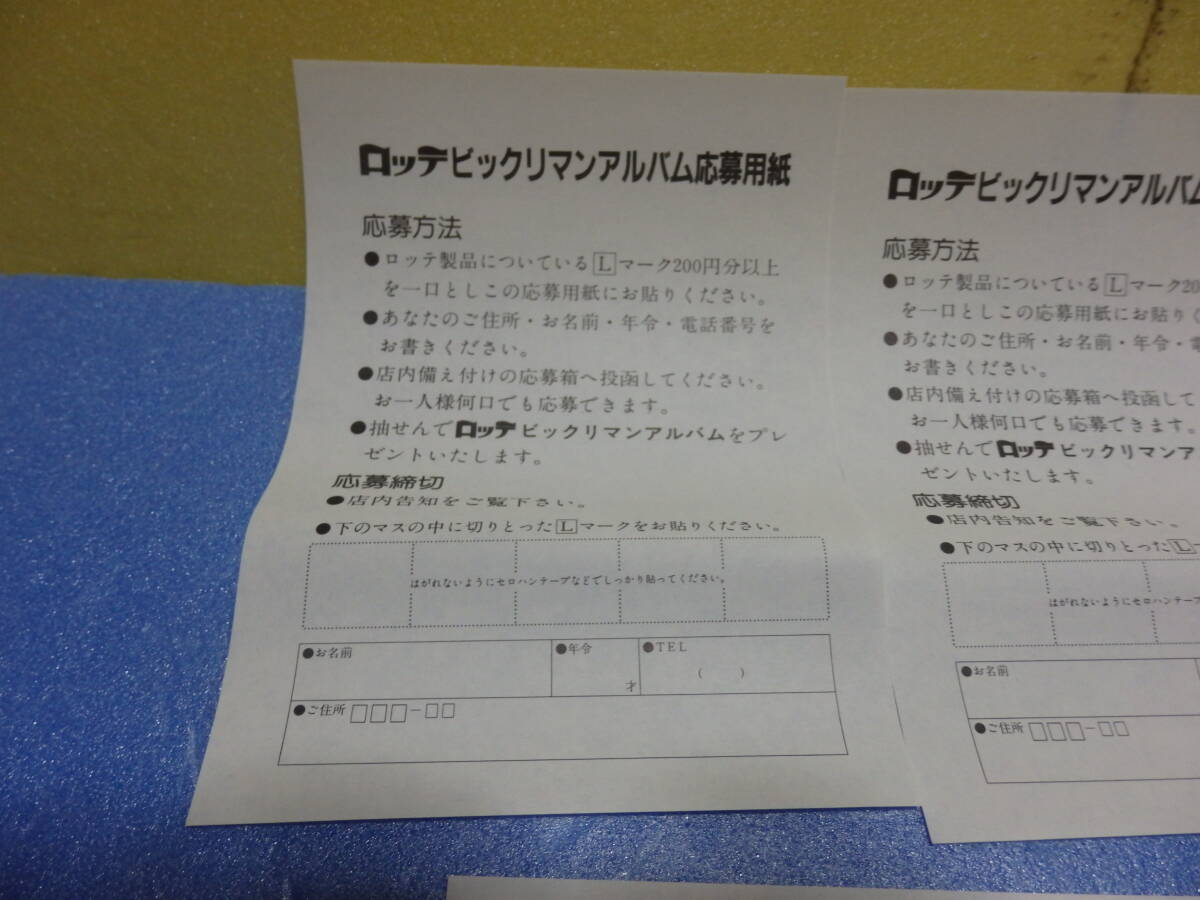 ロッテビックリマンアルバム応募用紙
応募方法
●ロッテ製品についているLマーク200円分以上
を一口としこの応募用紙にお貼りください。
●あなたのご住所・お名前・年令・電話番号を
お書きください。
●店内備え付けの応募箱へ投函してください。
お一人様何口でも応募できます。
●抽せんでロッテビックリマンアルバムをプレ
ゼントいたします。
応募締切
●店内告知をご覧下さい。
●下のマスの中に切りとったLマークをお貼りください。
はがれないようにセロハンテープなどでしっかり貼ってください。
●お名前
●年令
才
●TEL
( )
●ご住所 □□□-□□
ロッテビックリマンアルバム
応募方法
●ロッテ製品についているLマーク20
を一口としこの応募用紙にお貼りく
●あなたのご住所・お名前・年令・電
お書きください。
●店内備え付けの応募箱へ投函して
お一人様何口でも応募できます。
●抽せんでロッテビックリマンア
ゼントいたします。
応募締切
●店内告知をご覧下さい。
●下のマスの中に切りとったL
はがれないようにセロハンテー
●お名前
●ご住所 □□□-□□